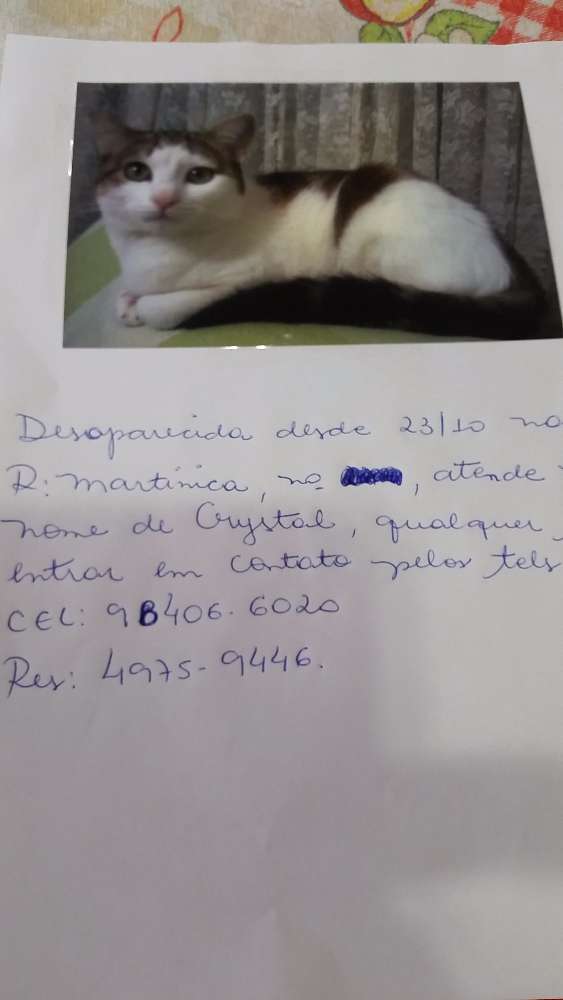 Desaparecida desde 23/10 na
R: martinica, no , atende
nome de Crystal, qualquer
entrar em contato pelos tels
CEL: 98406-6020
Res: 4975-9446.